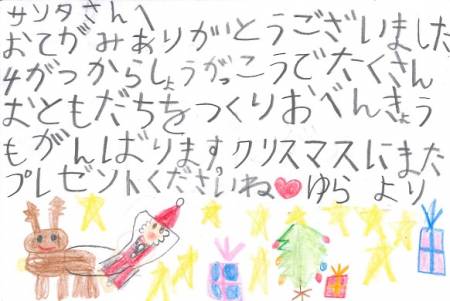 サンタさんへ
おてがみありがとうございました
4がつからしょうがっこうでたくさん
おともだちをつくりおべんきょう
もがんばります。クリスマスにまた
プレゼントくださいね♥ゆらより